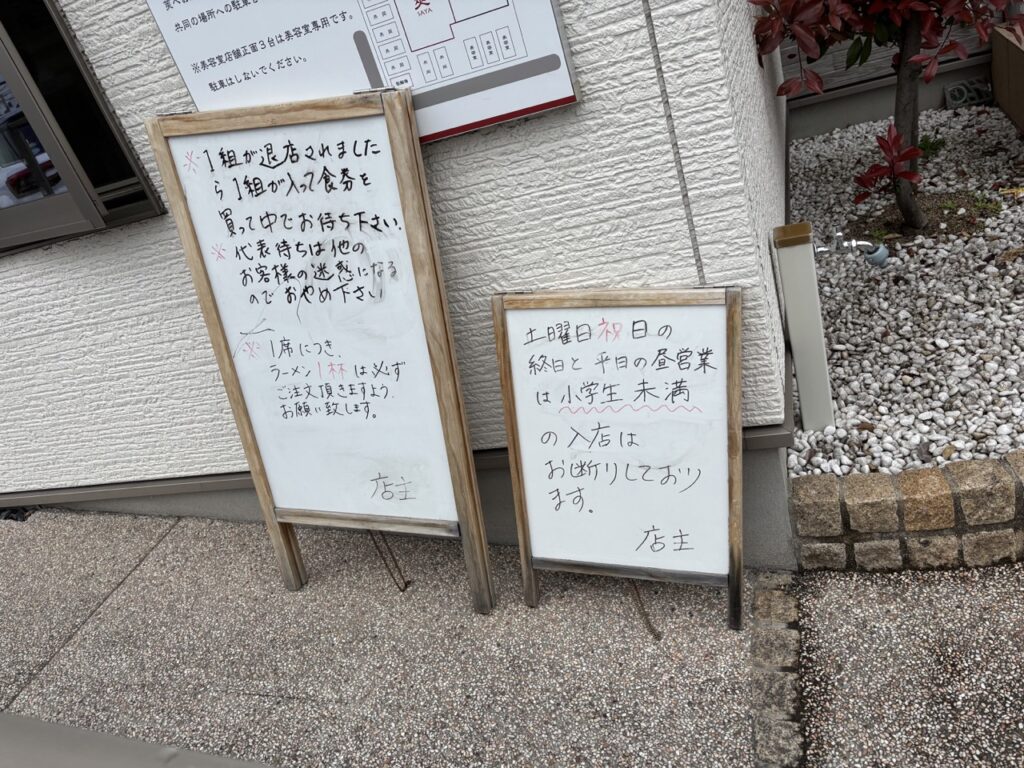 共同の場所への駐車
※美容室店舗正面3台は美容室専用です。
駐車はしないでください。
※1組が退店されました
ら1組が入って食券を
買って中でお待ち下さい.
※代表待ちは他の
お客様の迷惑になる
のでおやめ下さい
※1席につき、
ラーメン1杯は必ず
ご注文頂きますよう、
お願い致します。
店主
土曜日祝日の
終日と平日の昼営業
は小学生未満
の入店は
お断りしており
ます。
店主